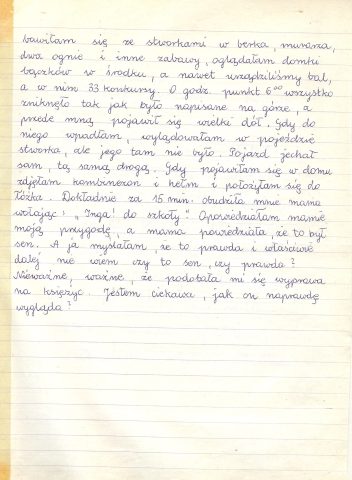 bawiłam się ze stworkami w berka, murarza,
dwa ognie i inne zabawy, oglądałam domki
bączków w środku, a nawet urządziliśmy bal,
a w nim 33 konkursy. O godz. punkt 6⁰⁰ wszystko
zniknęło tak jak było napisane na górze, a
przede mną pojawił się wielki dół. Gdy do
niego wpadłam, wylądowałam w pojeździe
stworka, ale jego tam nie było. Pojazd jechał
sam, tą samą drogą. Gdy pojawiłam się w domu
zdjęłam kombinezon i hełm i położyłam się do
łóżka. Dokładnie za 15 min. obudziła mnie mama
wołając: „Inga! do szkoły". Opowiedziałam mamie
moją przygodę, a mama powiedziała, że to był
sen. A ja myślałam, że to prawda i właściwie
dalej nie wiem czy to sen, czy prawda?
Nieważne, ważne, że podobała mi się wyprawa
na księżyc. Jestem ciekawa, jak on naprawdę
wygląda?